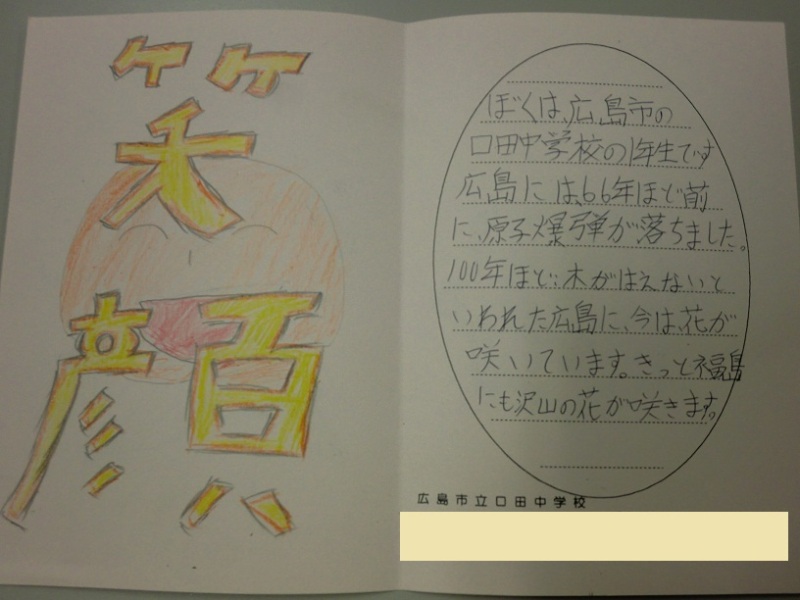 笑顔
ぼくは、広島市の
口田中学校の1年生です
広島には、66年ほど前
に、原子爆弾が落ちました。
100年ほど、木がはえないと
いわれた広島に、今は、花が
咲いています。きっと福島
にも沢山の花が咲きます。
広島市立口田中学校